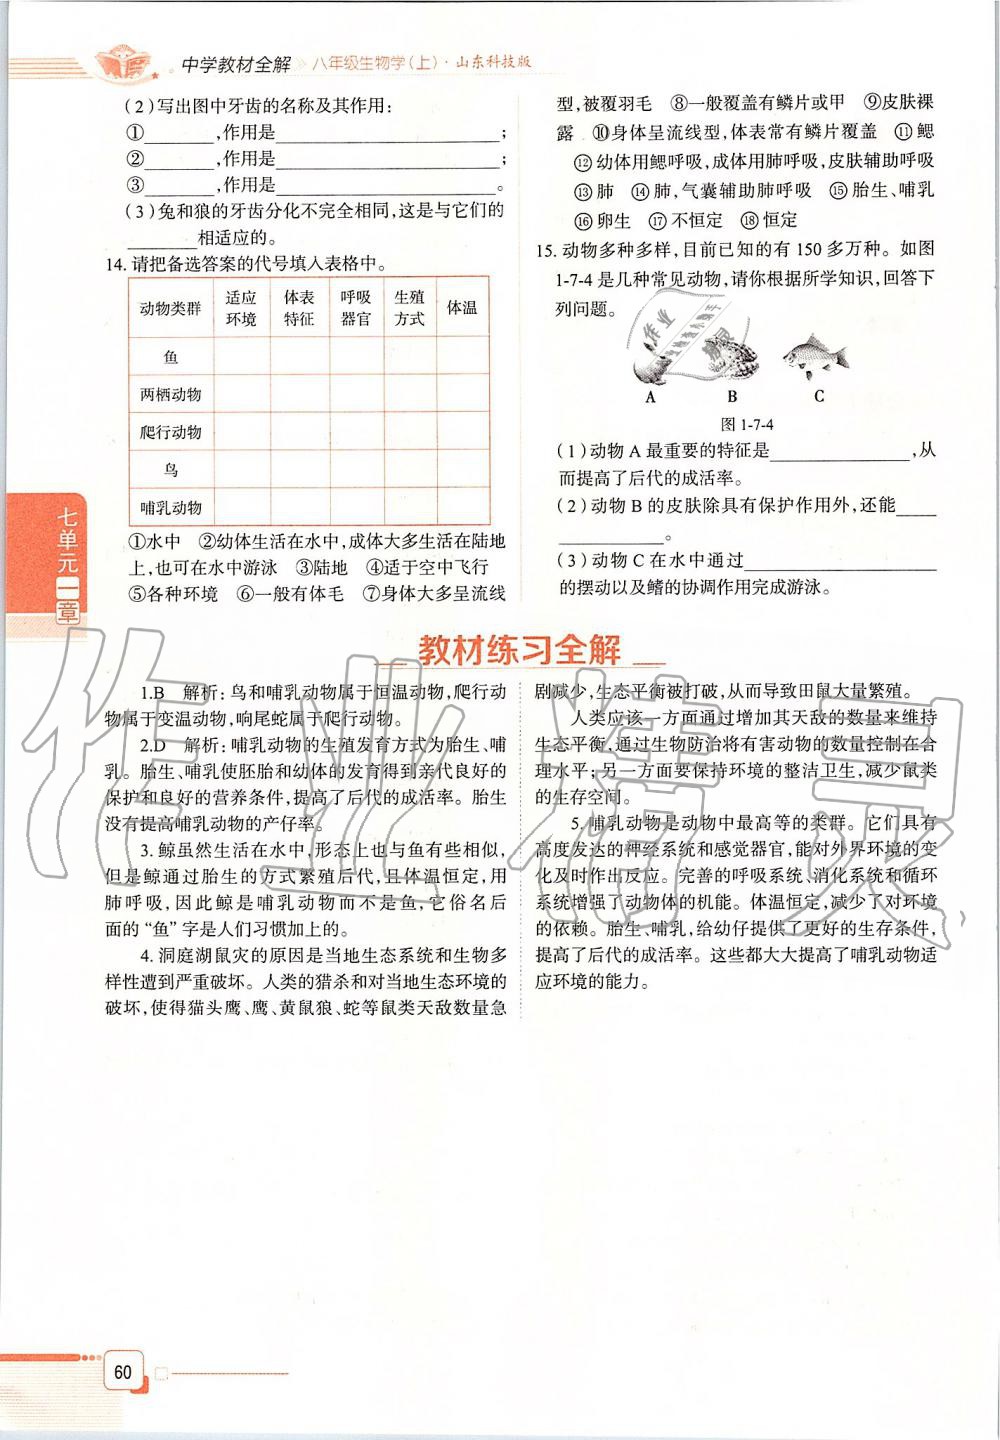 中学教材全解 八年级生物学(上)·山东科技版
(2)写出图中牙齿的名称及其作用:
①________,作用是________________________;
②________,作用是________________________;
③________,作用是________________________。
(3)兔和狼的牙齿分化不完全相同,这是与它们的
________相适应的。
14.请把备选答案的代号填入表格中。
动物类群 适应环境 体表特征 呼吸器官 生殖方式 体温
鱼
两栖动物
爬行动物
鸟
哺乳动物
①水中 ②幼体生活在水中,成体大多生活在陆地
上,也可在水中游泳 ③陆地 ④适于空中飞行
⑤各种环境 ⑥一般有体毛 ⑦身体大多呈流线
型,被覆羽毛 ⑧一般覆盖有鳞片或甲 ⑨皮肤裸
露 ⑩身体呈流线型,体表常有鳞片覆盖 ⑪鳃
⑫幼体用鳃呼吸,成体用肺呼吸,皮肤辅助呼吸
⑬肺 ⑭肺,气囊辅助肺呼吸 ⑮胎生、哺乳
⑯卵生 ⑰不恒定 ⑱恒定
15.动物多种多样,目前已知的有 150 多万种。如图
1-7-4 是几种常见动物,请你根据所学知识,回答下
列问题。
A B C
图 1-7-4
(1)动物 A 最重要的特征是________________,从
而提高了后代的成活率。
(2)动物 B 的皮肤除具有保护作用外,还能_____
____________。
(3)动物 C 在水中通过______________________
的摆动以及鳍的协调作用完成游泳。
七单元一章
教材练习全解
1.B 解析:鸟和哺乳动物属于恒温动物,爬行动
物属于变温动物,响尾蛇属于爬行动物。
2.D 解析:哺乳动物的生殖发育方式为胎生、哺
乳。胎生、哺乳使胚胎和幼体的发育得到亲代良好的
保护和良好的营养条件,提高了后代的成活率。胎生
没有提高哺乳动物的产仔率。
3. 鲸虽然生活在水中,形态上也与鱼有些相似,
但是鲸通过胎生的方式繁殖后代,且体温恒定,用
肺呼吸,因此鲸是哺乳动物而不是鱼,它俗名后
面的“鱼”字是人们习惯加上的。
4. 洞庭湖鼠灾的原因是当地生态系统和生物多
样性遭到严重破坏。人类的猎杀和对当地生态环境的
破坏,使得猫头鹰、鹰、黄鼠狼、蛇等鼠类天敌数量急
剧减少,生态平衡被打破,从而导致田鼠大量繁殖。
人类应该一方面通过增加其天敌的数量来维持
生态平衡,通过生物防治将有害动物的数量控制在合
理水平;另一方面要保持环境的整洁卫生,减少鼠类
的生存空间。
5. 哺乳动物是动物中最高等的类群。它们具有
高度发达的神经系统和感觉器官,能对外界环境的变
化及时作出反应。完善的呼吸系统、消化系统和循环
系统增强了动物体的机能。体温恒定,减少了对环境
的依赖。胎生、哺乳,给幼仔提供了更好的生存条件,
提高了后代的成活率。这些都大大提高了哺乳动物适
应环境的能力。
作业精灵
60